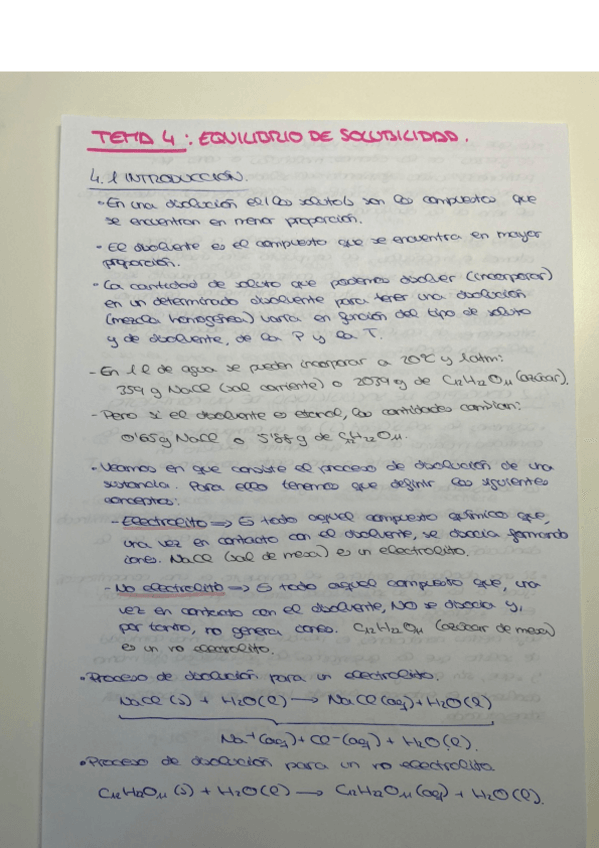 TEMA 4: EQUILIBRIO DE SOLUBILIDAD.
4.1 INTRODUCCIÓN.
• En una disolución el/los soluto/s son los compuestos que
se encuentran en menor proporción.
• El disolvente es el compuesto que se encuentra en mayor
proporción.
• La cantidad de soluto que podemos disolver (incorporar)
en un determinado disolvente para tener una disolución
(mezcla homogénea) varía en función del tipo de soluto
y de disolvente, de la P y la T.
- En 1 l de agua se pueden incorporar a 20ºC y 1atm:
359 g NaCl (sal corriente) o 2039 g de C12H22O11 (azúcar).
- Pero si el disolvente es etanol, las cantidades cambian:
0'65 g NaCl o 5'88 g de C12H22O11.
• Veamos en que consiste el proceso de disolución de una
sustancia. Para ello tenemos que definir los siguientes
conceptos:
- Electrolito ⇒ Es todo aquel compuesto químico que,
una vez en contacto con el disolvente, se disocia formando
iones. NaCl (sal de mesa) es un electrolito.
- No electrolito ⇒ Es todo aquel compuesto que, una
vez en contacto con el disolvente, NO se disocia y,
por tanto, no genera iones. C12H22O11 (azúcar de mesa)
es un no electrolito.
• Proceso de disolución para un electrolito.
NaCl (s) + H2O(l) → NaCl (aq) + H2O(l)
Na+(aq) + Cl-(aq) + H2O(l).
• Proceso de disolución para un no electrolito
C12H22O11 (s) + H2O(l) → C12H22O11 (aq) + H2O(l).